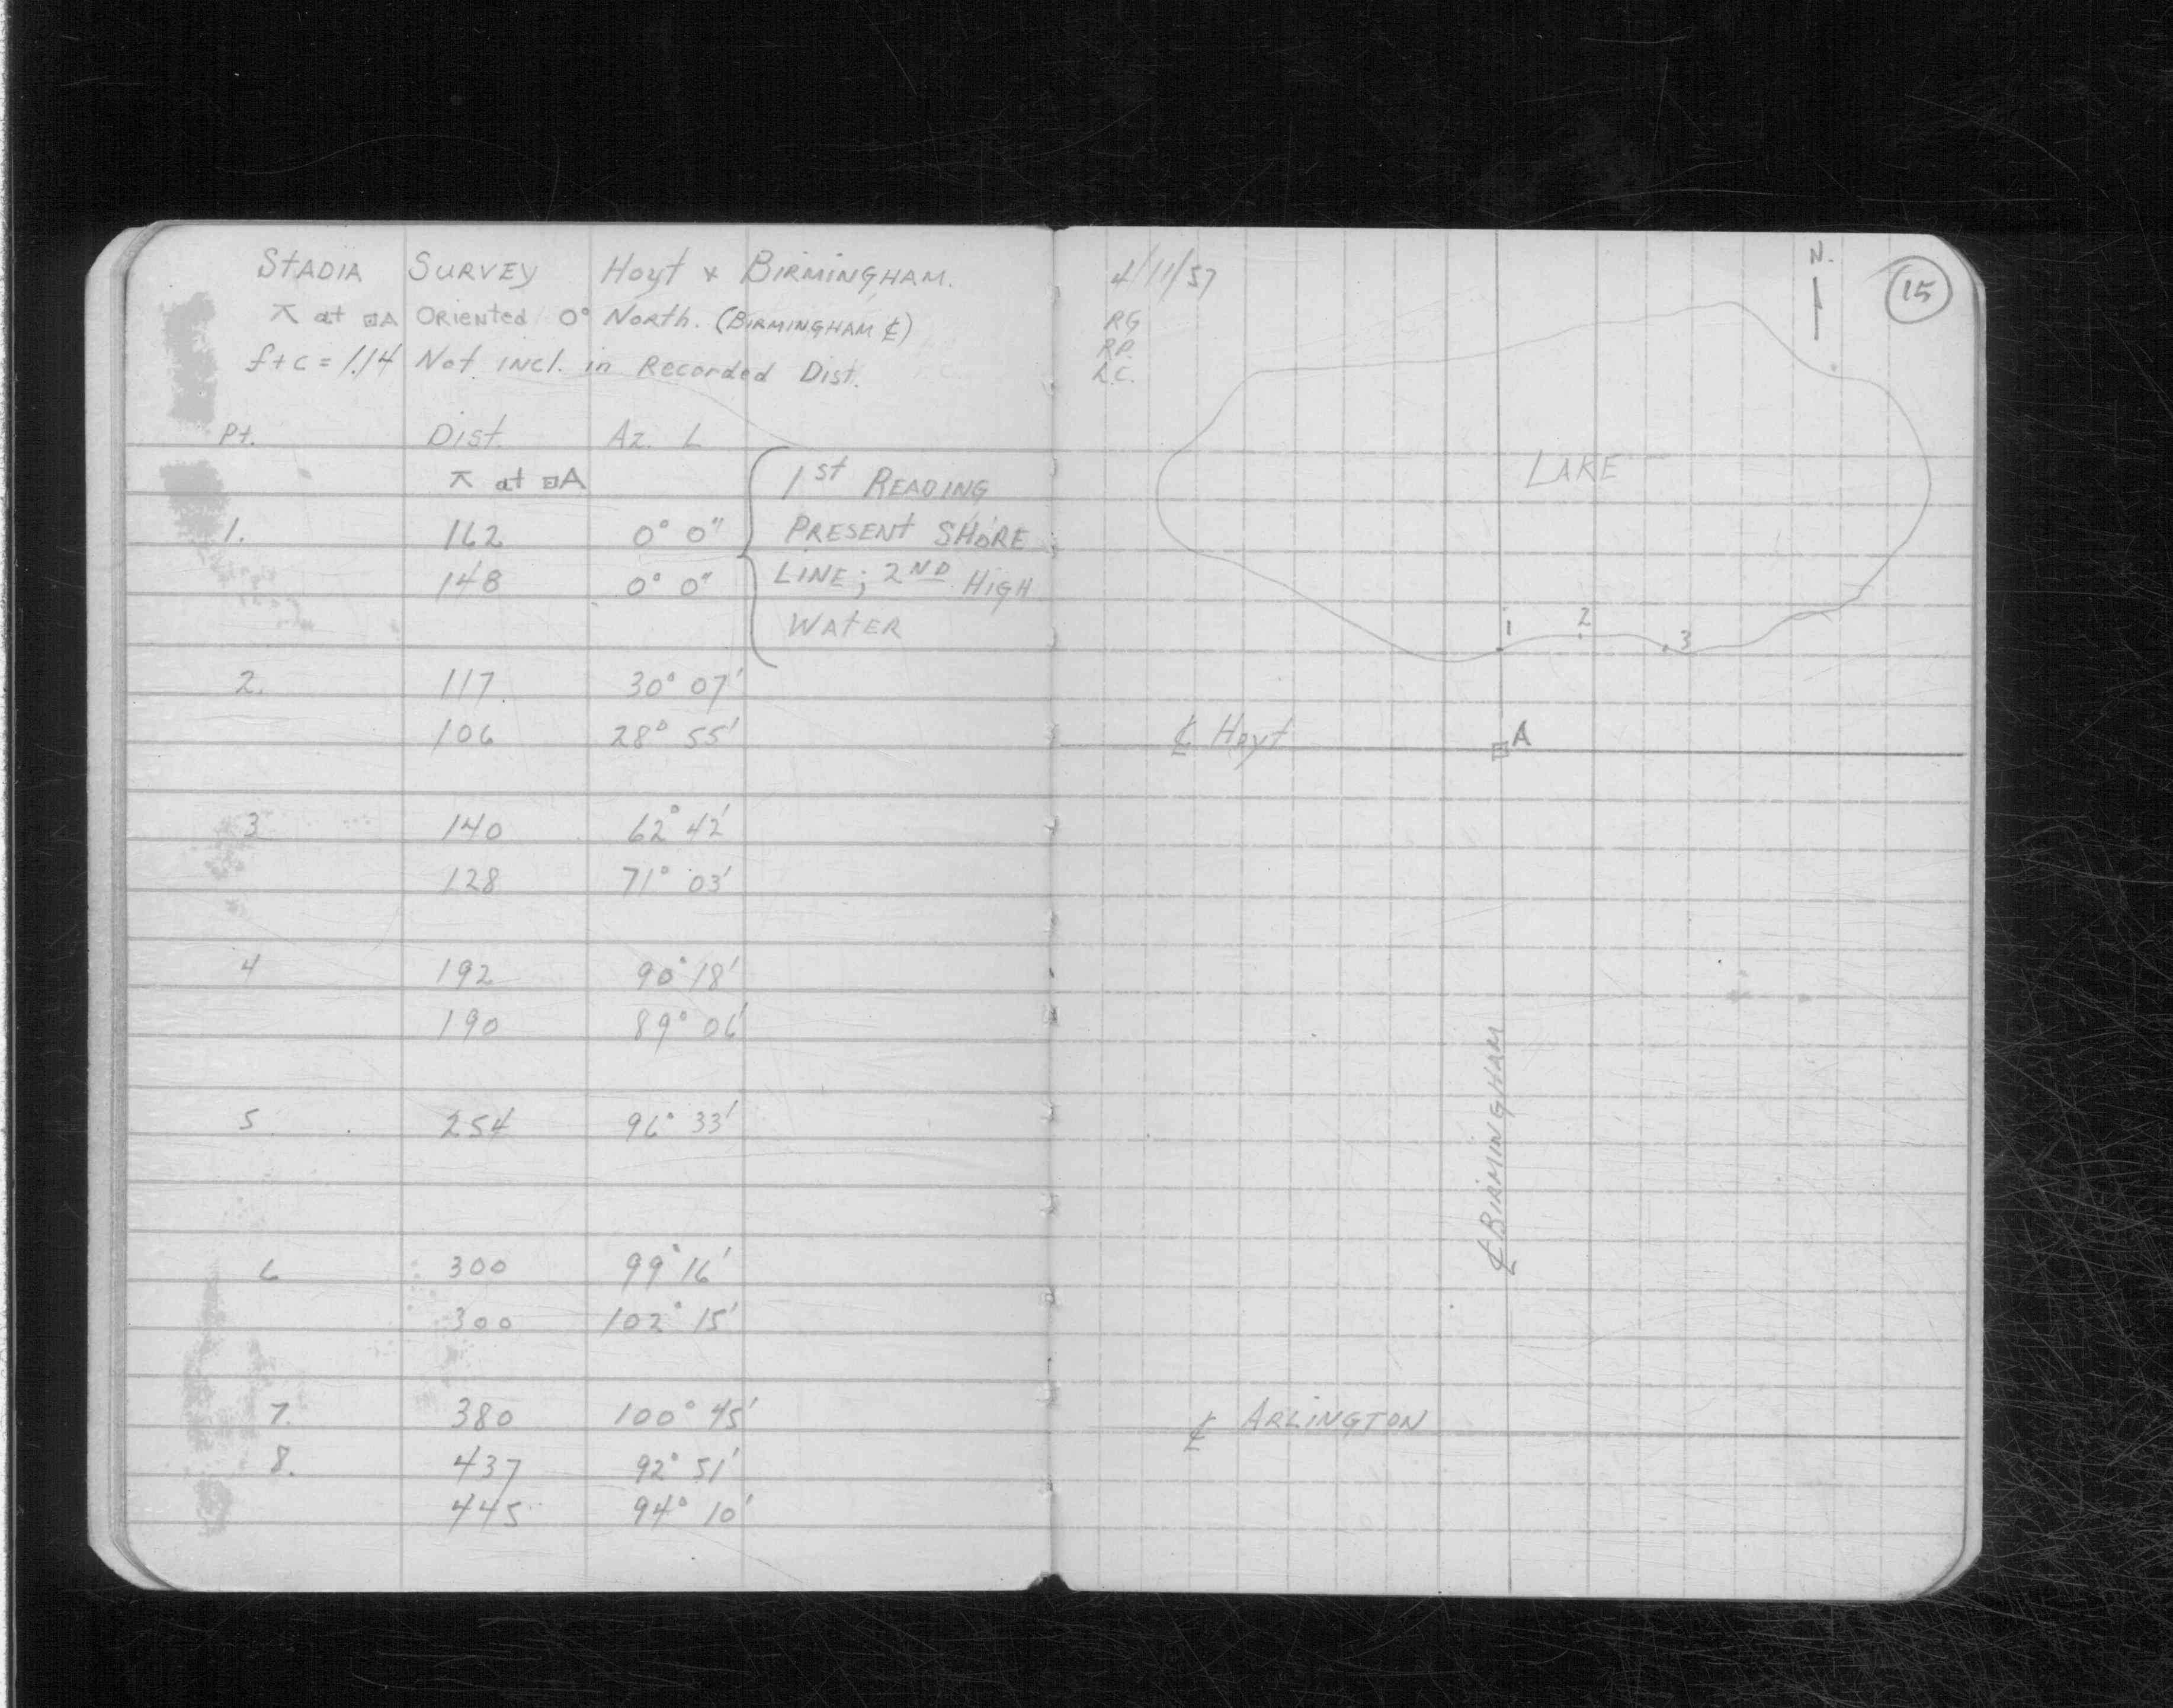 STADIA SURVEY Hoyt & BIRMINGHAM.
⊼ at ⊡A ORiented 0° NORTH. (BIRMINGHAM ℄)
f+c = 1.14 Not incl. in Recorded Dist.
Pt. Dist. Az. L
⊼ at ⊡A
1. 162 0° 0"
148 0° 0"
1st READING
PRESENT SHORE
LINE; 2ND HIGH
WATER
2. 117 30° 07'
106 28° 55'
3 140 62° 42'
128 71° 03'
4 192 90° 18'
190 89° 06'
5 254 96° 33'
6 300 99° 16'
300 102° 15'
7. 380 100° 45'
8. 437 92° 51'
445 94° 10'
4/11/57
RG
RP.
L.C.
N.
15
LAKE
1 2 3
℄ Hoyt
A
℄ BIRMINGHAM
℄ ARLINGTON